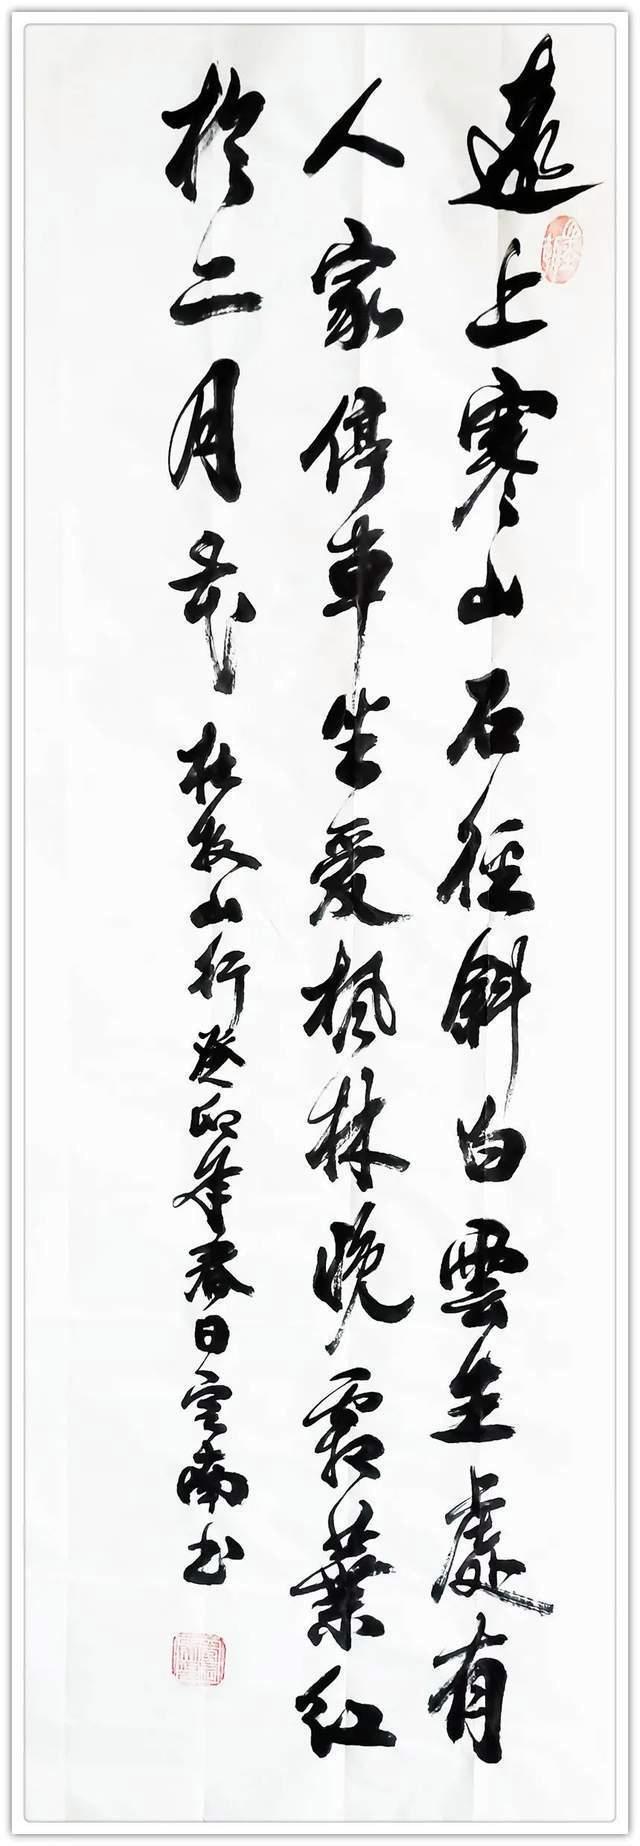 遠上寒山石徑斜白雲生處有
人家停車坐愛楓林晚霜葉紅
於二月花 杜牧山行癸卯年春日南书